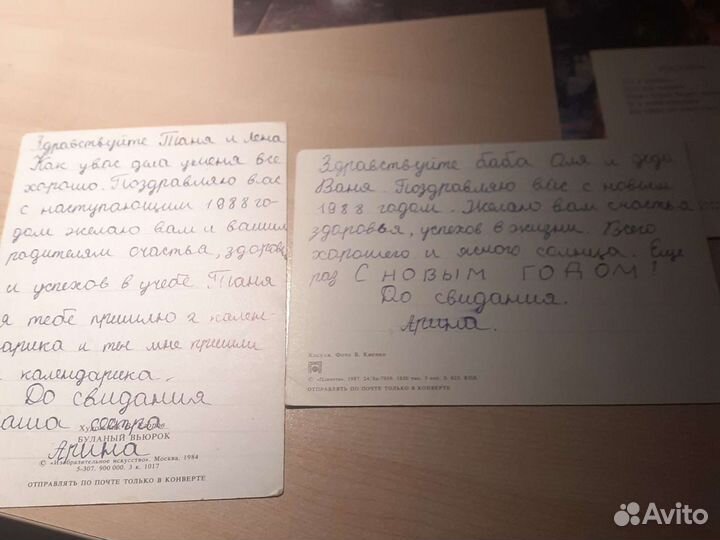 Здравствуйте Таня и Лена
Как у вас дела у меня все
хорошо. Поздравляю вас
с наступающим 1988 го-
дом желаю вам и вашим
родителям счастья, здоровь
и успехов в учебе Таня
я тебе пришлю 2 кален-
дарика и ты мне пришли
календарика.
До свидания
ваша сестра
Арина
Художник
БУЛАНЫЙ ВЬЮРОК
© «Изобразительное искусство». Москва. 1984
5-307. 900 000. 3 к. 1017
ОТПРАВЛЯТЬ ПО ПОЧТЕ ТОЛЬКО В КОНВЕРТЕ
Здравствуйте баба Оля и деда
Ваня. Поздравляю вас с новым
1988 годом. Желаю вам счастья
здоровья, успехов в жизни. Всего
хорошего и ясного солнца. Еще
раз С НОВЫМ ГОДОМ!
До свидания.
Арина.
Фото
© «Планета», 1987.
ОТПРАВЛЯТЬ ПО ПОЧТЕ ТОЛЬКО В КОНВЕРТЕ
Avito